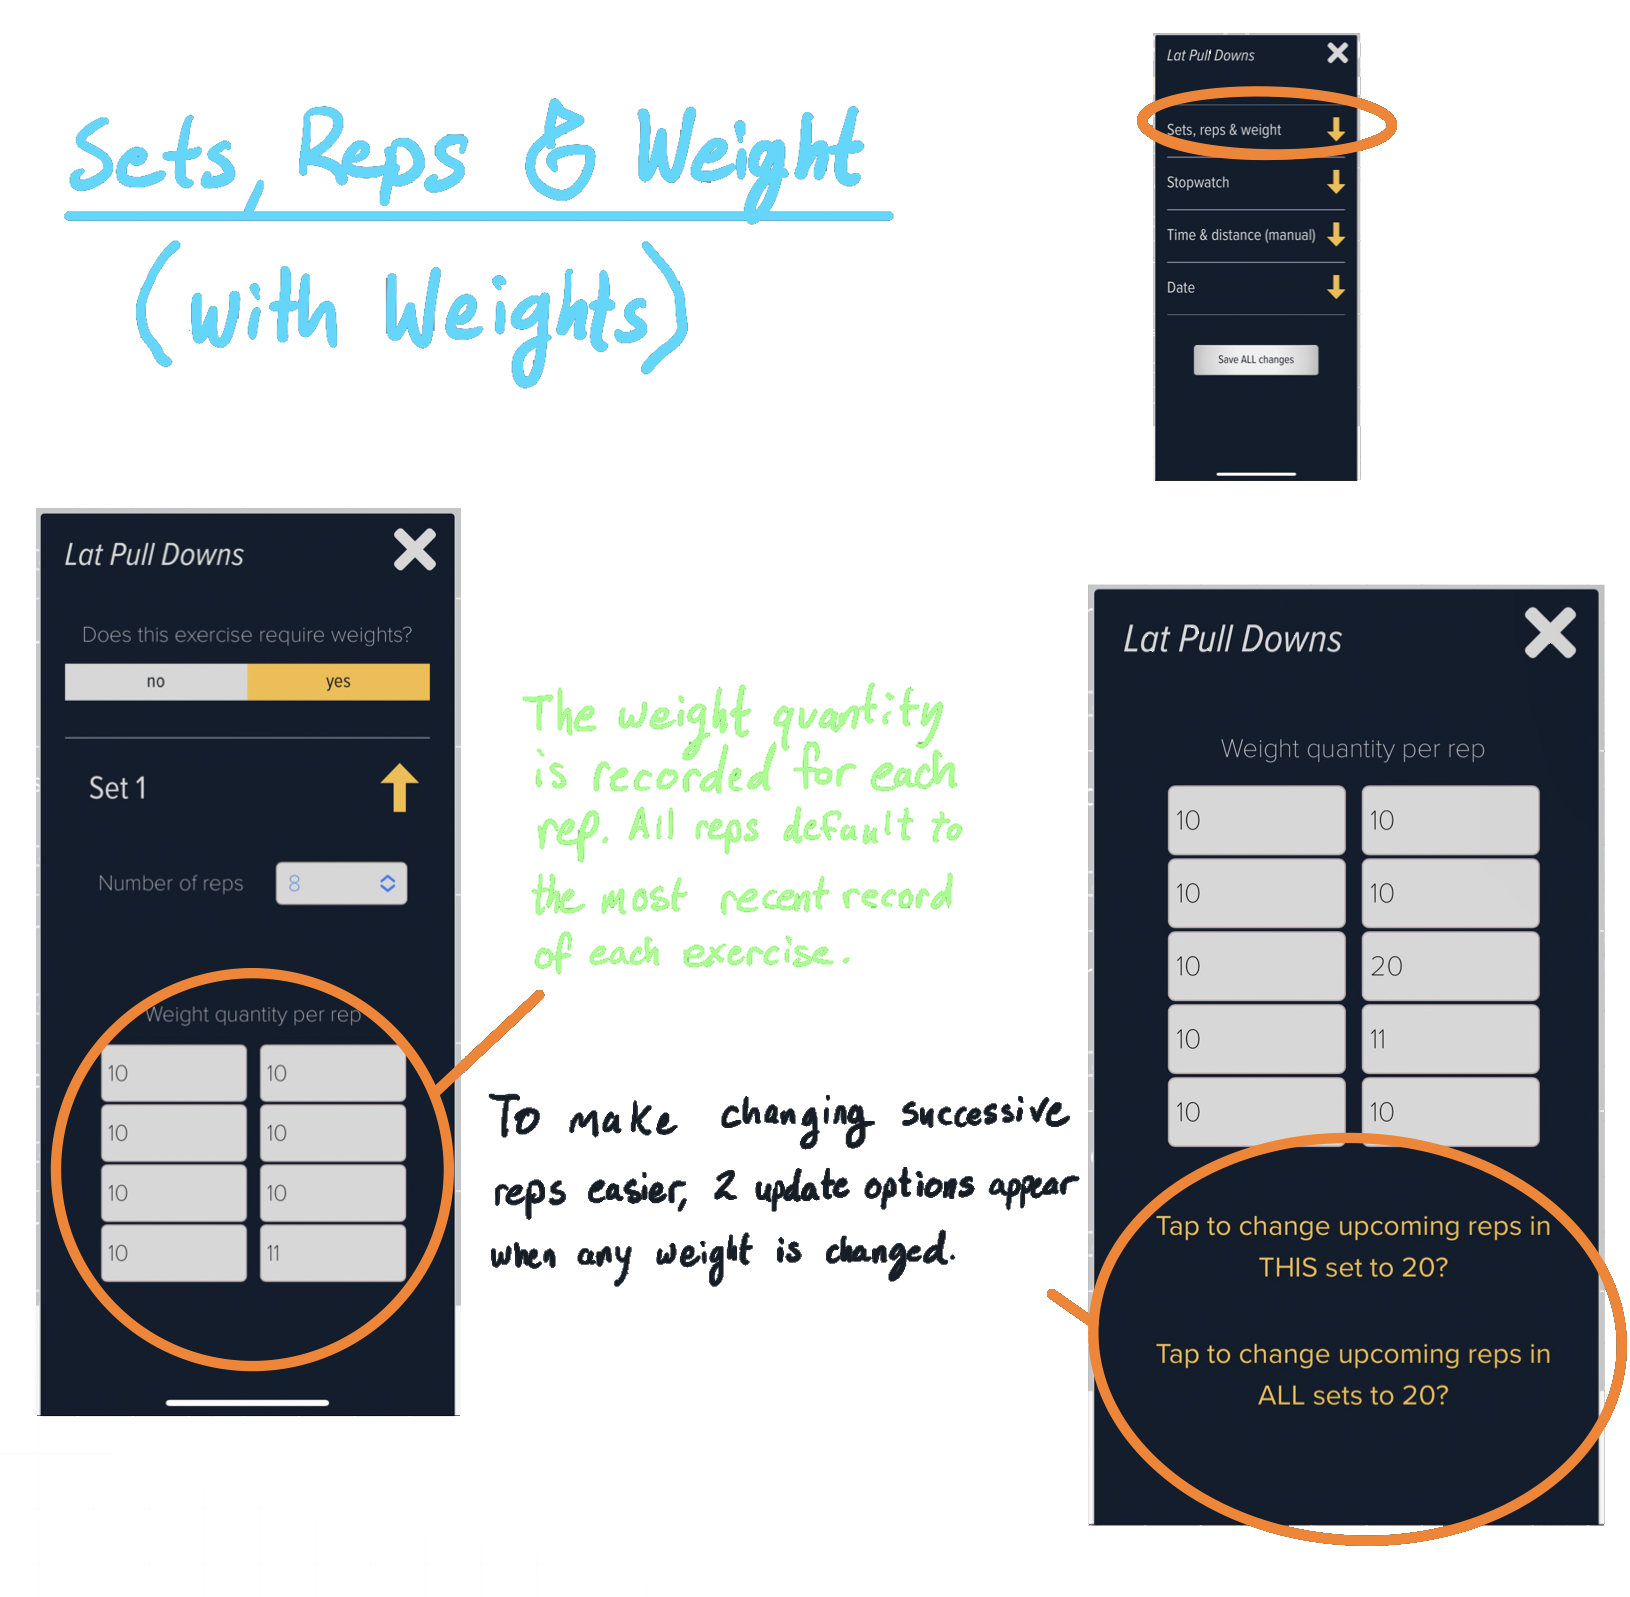 Sets, Reps & Weight
(with Weights)
Lat Pull Downs
Sets, reps & weight
Stopwatch
Time & distance (manual)
Date
Save ALL changes
Lat Pull Downs
Does this exercise require weights?
no yes
Set 1
Number of reps 8
Weight quantity per rep
10 10
10 10
10 10
10 11
The weight quantity
is recorded for each
rep. All reps default to
the most recent record
of each exercise.
To make changing successive
reps easier, 2 update options appear
when any weight is changed.
Lat Pull Downs
Weight quantity per rep
10 10
10 10
10 20
10 11
10 10
Tap to change upcoming reps in
THIS set to 20?
Tap to change upcoming reps in
ALL sets to 20?